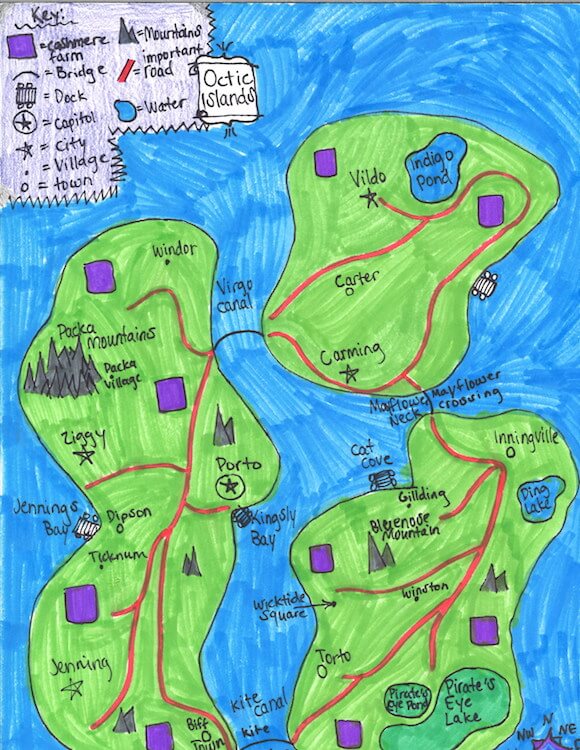 Key:
=cashmere farm
=Mountains
=Bridge
=important road
=Dock
=Capitol
=Water
=city
=Village
=town
Octic
Islands
Vildo
Indigo
Pond
Windor
Virgo
canal
Carter
Packa
Mountains
Packa
Village
Carming
Mayflower
Neck
Mayflower
crossing
Ziggy
Porto
Inningville
Cat
Cove
Gillding
Ding
Lake
Jennings
Bay
Dipson
Kingsly
Bay
Bluenose
Mountain
Ticknum
Wicktide
Square
Winston
Jenning
Torto
Pirate's
Eye Pond
Pirate's
Eye
Lake
Kite
canal
Kite
Biff
Town
N
NW
NE